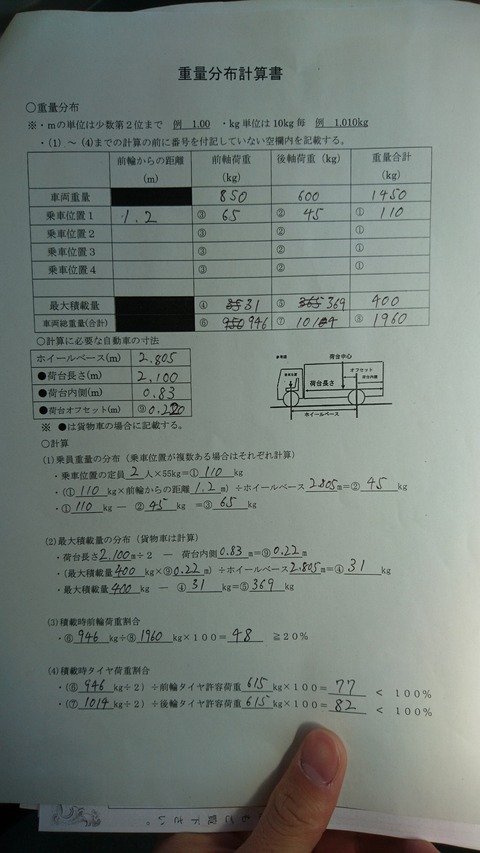 重量分布計算書
○重量分布
※・mの単位は少数第2位まで 例 1.00 ・kg単位は10kg毎 例 1,010kg
・(1) ～ (4)までの計算の前に番号を付記していない空欄内を記載する。
前輪からの距離(m) 前軸荷重(kg) 後軸荷重(kg) 重量合計(kg)
車両重量 850 600 1450
乗車位置1 1.2 ③ 65 ② 45 ① 110
乗車位置2 ③ ② ①
乗車位置3 ③ ② ①
乗車位置4 ③ ② ①
最大積載量 ④ 35 31 ⑤ 365 369 400
車両総重量(合計) ⑥ 950 946 ⑦ 1014 ⑧ 1960
○計算に必要な自動車の寸法
ホイールベース(m) 2.805
●荷台長さ(m) 2.100
●荷台内側(m) 0.83
●荷台オフセット(m) ⑨0.220
※ ●は貨物車の場合に記載する。
参考図
荷台中心
オフセット
乗車位置
荷台内側
荷台長さ
ホイールベース
○計算
(1)乗員重量の分布(乗車位置が複数ある場合はそれぞれ計算)
・乗車位置の定員 2 人×55kg=① 110 kg
・(① 110 kg×前輪からの距離 1.2 m) ÷ホイールベース 2.805 m=② 45 kg
・① 110 kg ― ② 45 kg =③ 65 kg
(2)最大積載量の分布(貨物車は計算)
・荷台長さ 2.100 m÷2 ― 荷台内側 0.83 m=⑨ 0.22 m
・(最大積載量 400 kg×⑨ 0.22 m) ÷ホイールベース 2.805 m=④ 31 kg
・最大積載量 400 kg ― ④ 31 kg=⑤ 369 kg
(3)積載時前輪荷重割合
・⑥ 946 kg÷⑧ 1960 kg×100= 48 ≧20%
(4)積載時タイヤ荷重割合
・(⑥ 946 kg÷2) ÷前輪タイヤ許容荷重 615 kg×100= 77 < 100%
・(⑦ 1014 kg÷2) ÷後輪タイヤ許容荷重 615 kg×100= 82 < 100%